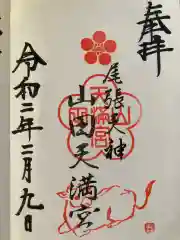 奉拝
尾張天神
山田天満宮
天満宮
令和二年二月九日